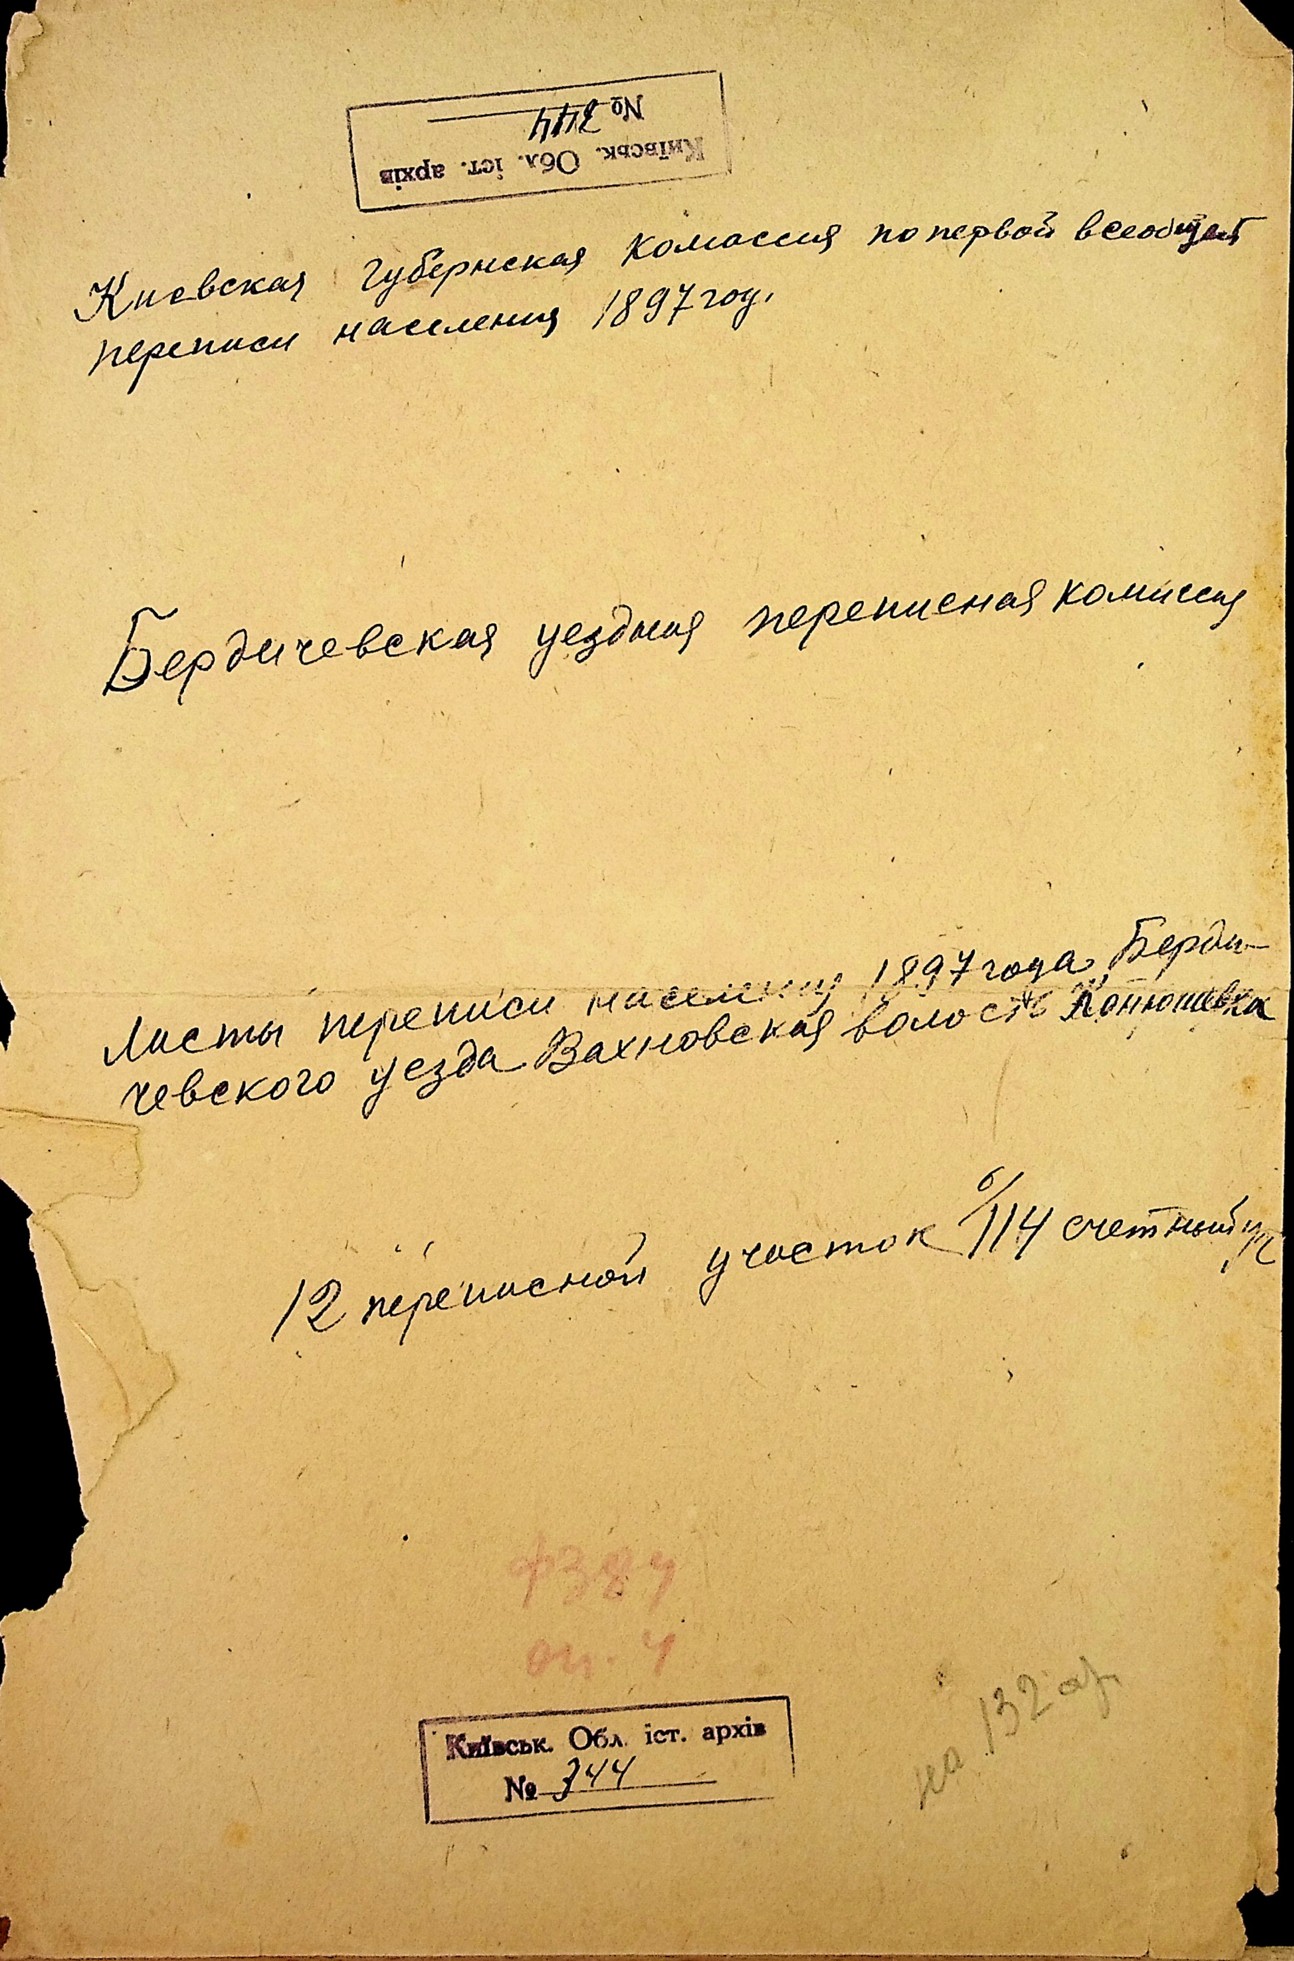 № 344
Київськ. Обл. іст. архів
Киевская губернская комассия по первой всеобщей
переписи населения 1897 год.
Бердичевская уездная переписная комиссия
Листы переписи населения 1897 года, Берди-
чевского уезда Вахновская волость Конюшевка
12 переписной участок б/114 счетный уч
ф 384
оп. 4
Київськ. Обл. іст. архів
№ 344
на 132 ар.